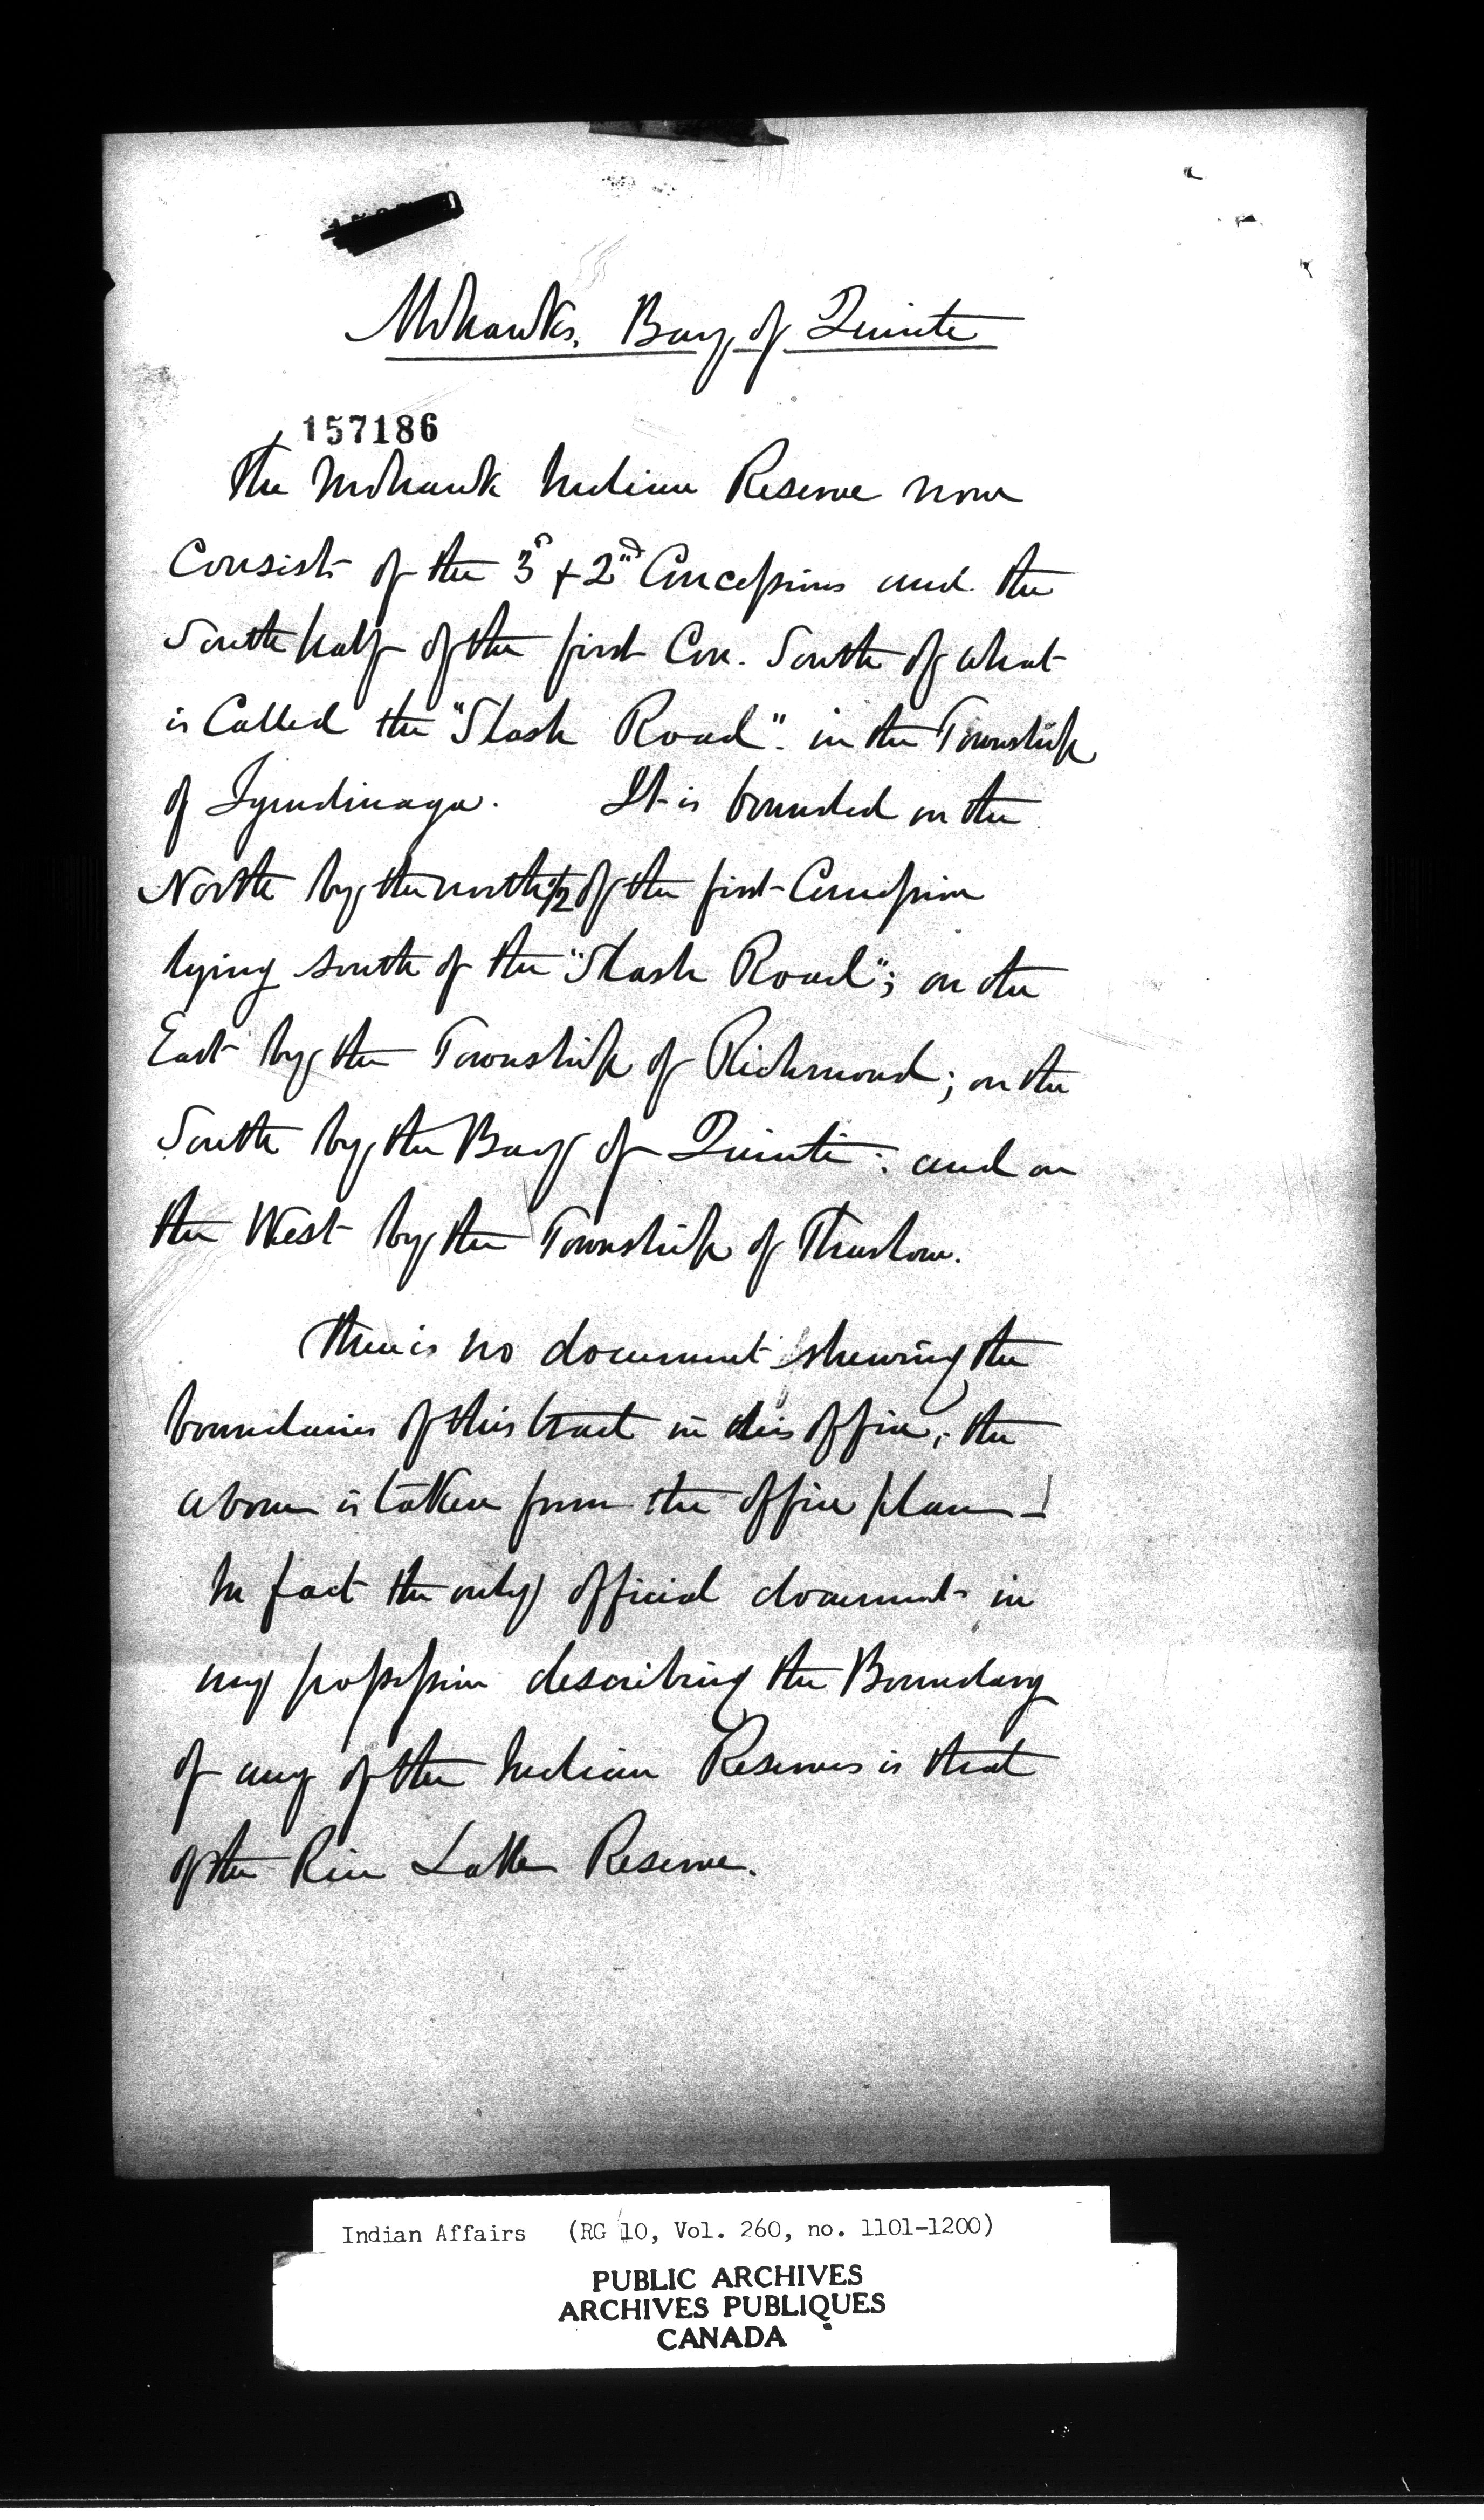 Mohawks, Bay of Quinte
157186
The Mohawk Indian Reserve now
Consists of the 3d & 2nd Concessions and the
South half of the first Con. South of what
is Called the "Slash Road". in the Township
of Tyendinaga. It is bounded on the
North by the north 1/2 of the first Concession
lying south of the "Slash Road"; on the
East by the Township of Richmond; on the
South by the Bay of Quinte: and on
the West by the Township of Thurlow.
There is no document shewing the
boundaries of this tract in this office, the
above is taken from the office plan —
In fact the only official documents in
my possession describing the Boundary
of any of the Indian Reserves is that
of the Rice Lake Reserve.
Indian Affairs (RG 10, Vol. 260, no. 1101-1200)
PUBLIC ARCHIVES
ARCHIVES PUBLIQUES
CANADA